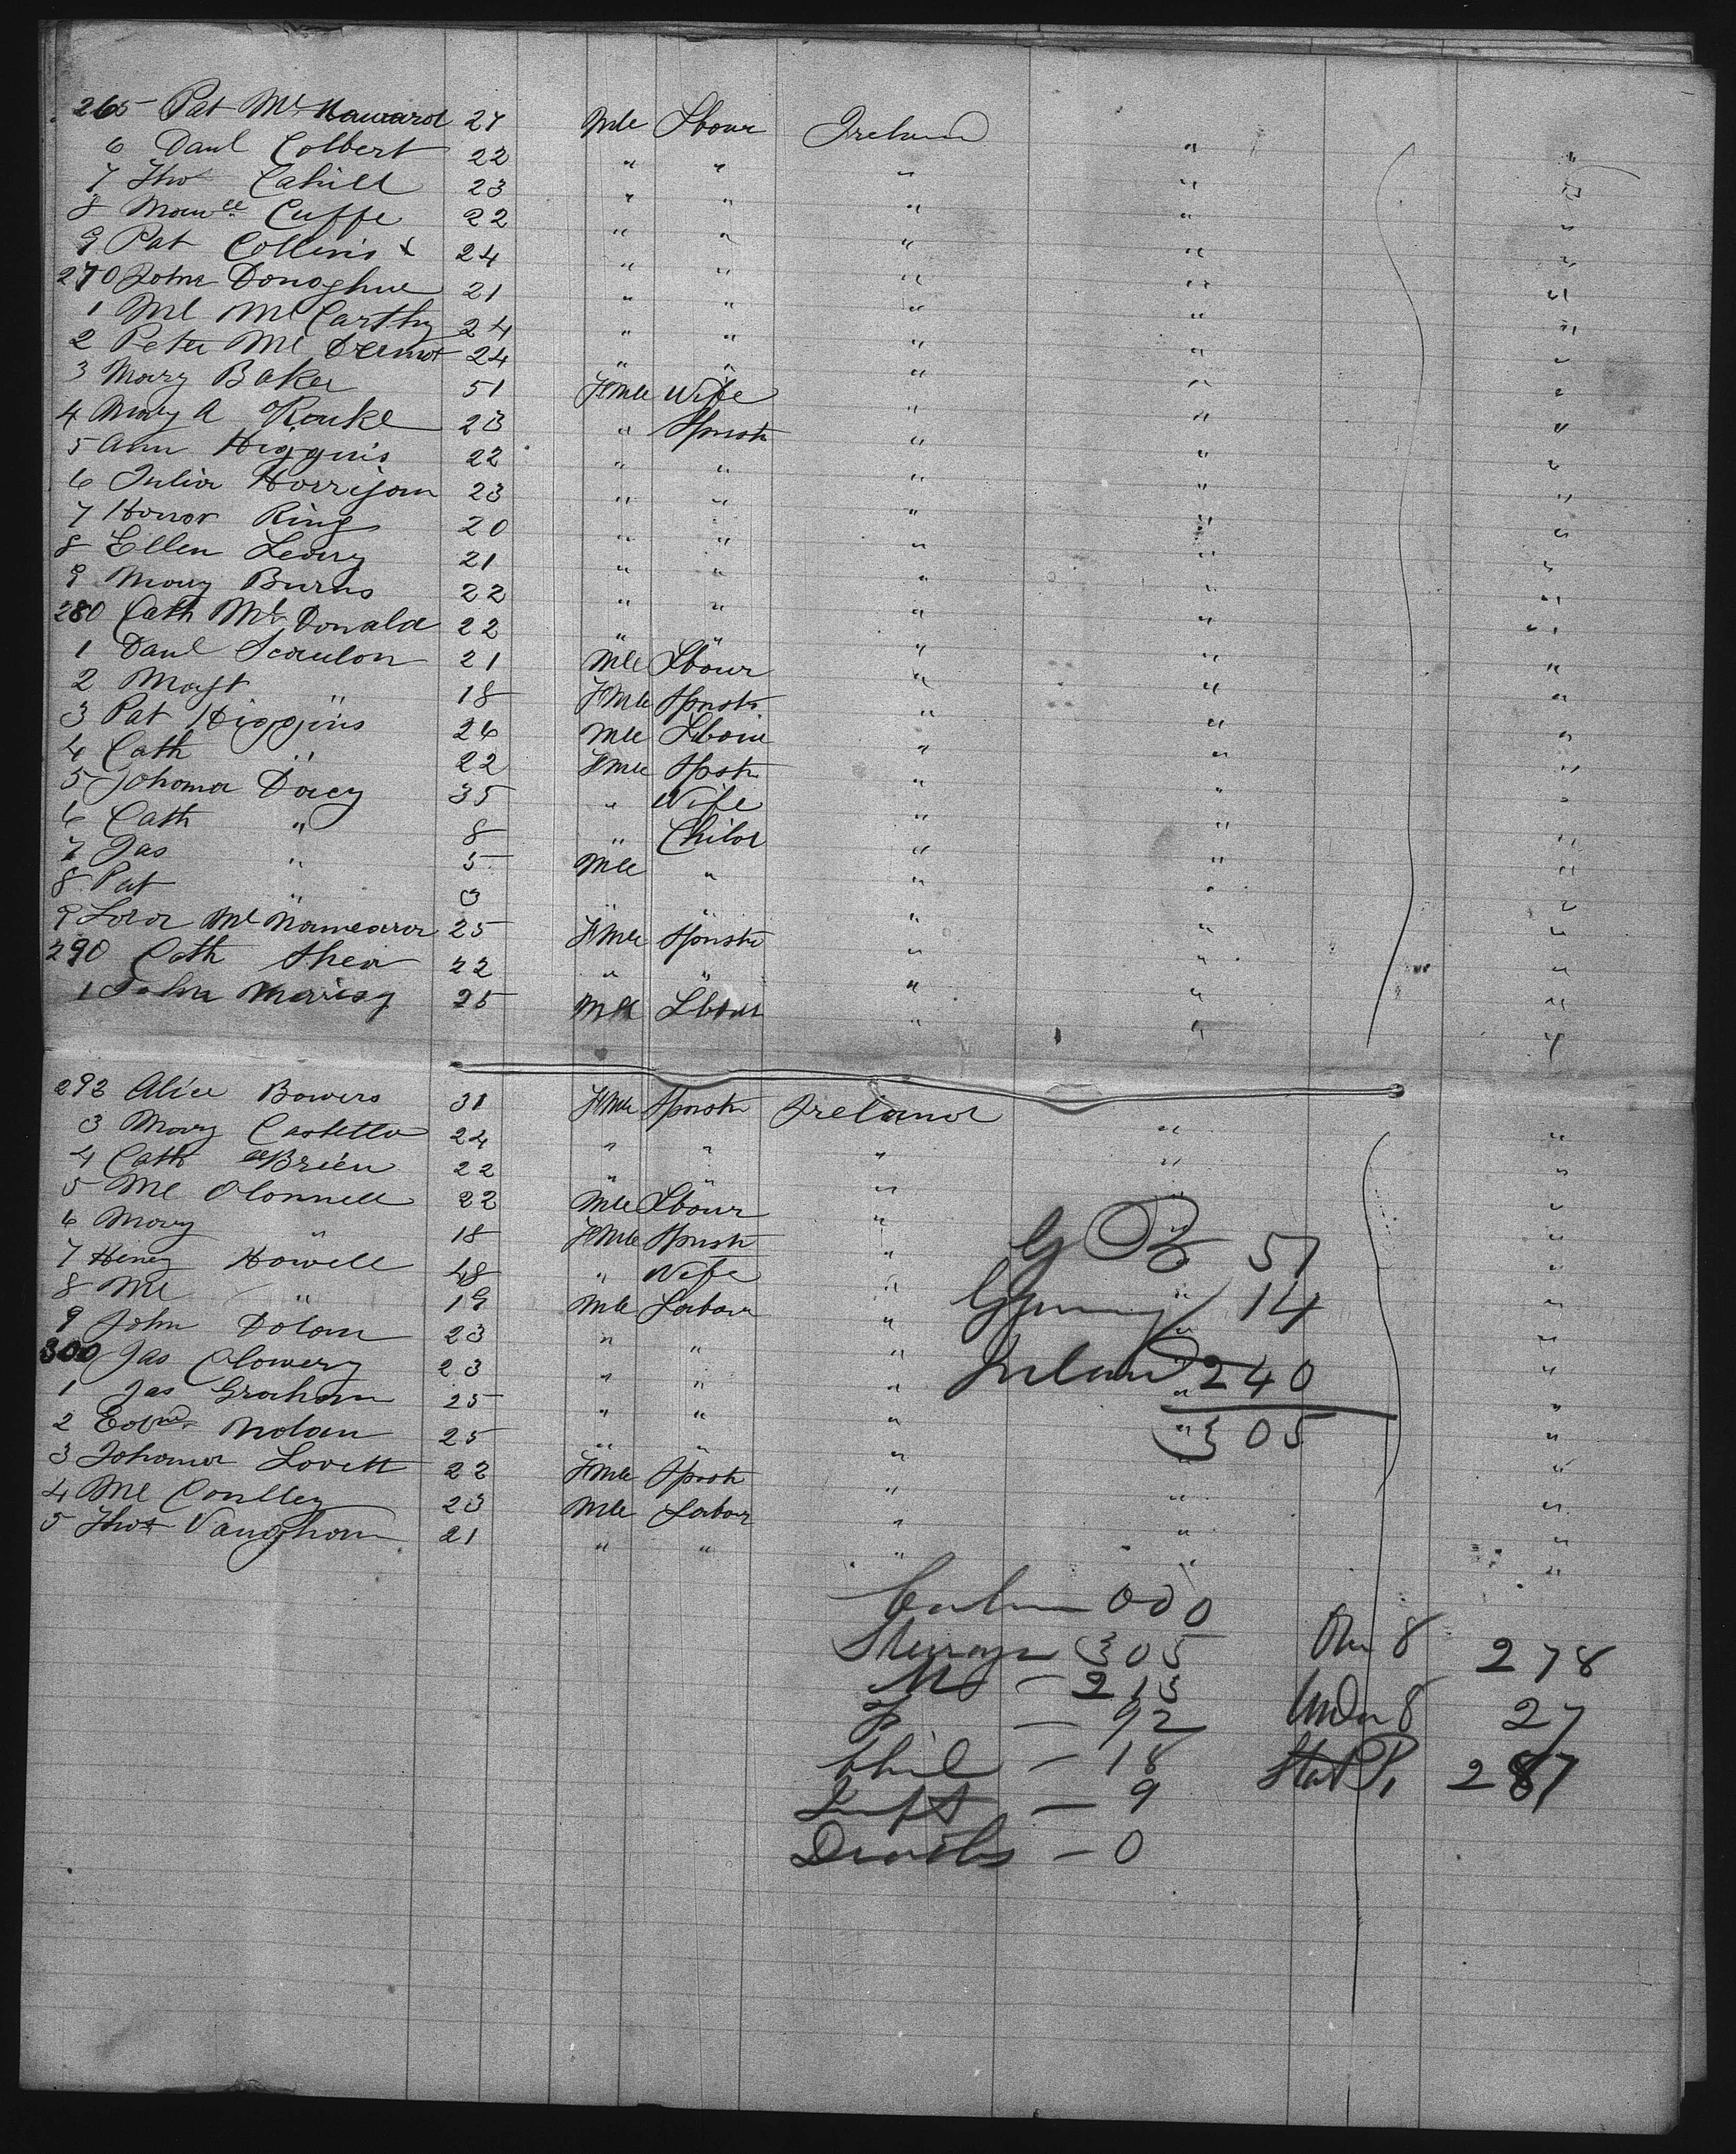 265 Pat Mc Naward 27 Mle Lbour Ireland " "
6 Danl Colbert 22 " " " " "
7 Thos Cahill 23 " " " " "
8 Maurce Cuffe 22 " " " " "
9 Pat Collins x 24 " " " " "
270 John Donoghue 21 " " " " "
1 Ml Mc Carthy 24 " " " " "
2 Peter Mc Dermot 24 " " " " "
3 Mary Baker 51 Fmle Wife " " "
4 Mary A Rourke 23 " Spnstr " " "
5 Ann Higgins 22 " " " " "
6 Julia Horrigan 23 " " " " "
7 Honor Ring 20 " " " " "
8 Ellen Leary 21 " " " " "
9 Mary Burns 22 " " " " "
280 Cath Mc Donald 22 " " " " "
1 Danl Scanlon 21 Mle Lbour " " "
2 Magt " 18 Fmle Spnstr " " "
3 Pat Higgins 26 Mle Lbour " " "
4 Cath " 22 Fmle Spstr " " "
5 Johanna Dacy 35 " Wife " " "
6 Cath " 8 " Child " " "
7 Jas " 5 Mle " " " "
8 Pat " 3 " " " " "
9 Mc Nameara 25 Fmle Spnstr " " "
290 Cath Shea 22 " " " " "
1 John 25 Mle Lbour " " "
292 Alice Bowers 31 Fmle Spnstr Ireland " "
3 Mary Castello 24 " " " " "
4 Cath OBrien 22 " " " " "
5 Ml OConnell 22 Mle Lbour " " "
6 Mary " 18 Fmle Spnstr " " "
7 Howell 48 " Wife " " "
8 Ml " 19 Mle Labour " " "
9 John Dolan 23 " " " " "
300 Jas Clowery 23 " " " " "
1 Jas Graham 25 " " " " "
2 Edwd Nolan 25 " " " " "
3 Johanna Lovett 22 Fmle Spnstr " " "
4 Ml Conlley 23 Mle Labour " " "
5 Thos Vaughan 21 " " " " "
G B 51
Germany 14
Ireland 240
305
000
Steerage 305
M — 213
F — 92
Chil — 18
Inft — 9
Deaths — 0
Over 8 278
Under 8 27
Stat P, 287